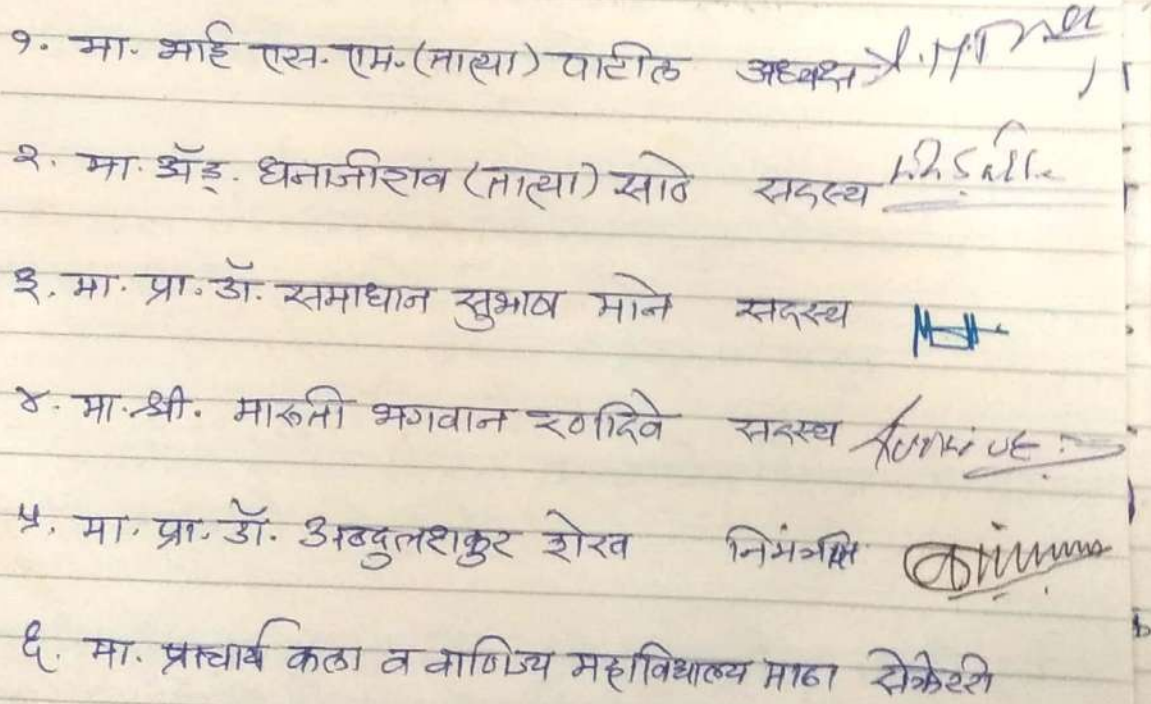 १. मा. भाई एस. एम. (तात्या) पाटील अध्यक्ष
२. मा. ॲड. धनाजीराव (तात्या) साठे सदस्य
३. मा. प्रा. डॉ. समाधान सुभाष माने सदस्य
४. मा. श्री. मारुती भगवान रणदिवे सदस्य
५. मा. प्रा. डॉ. अब्दुलशकुर शेख निमंत्रित
६. मा. प्राचार्य कला व वाणिज्य महाविद्यालय माढा सेक्रेटरी